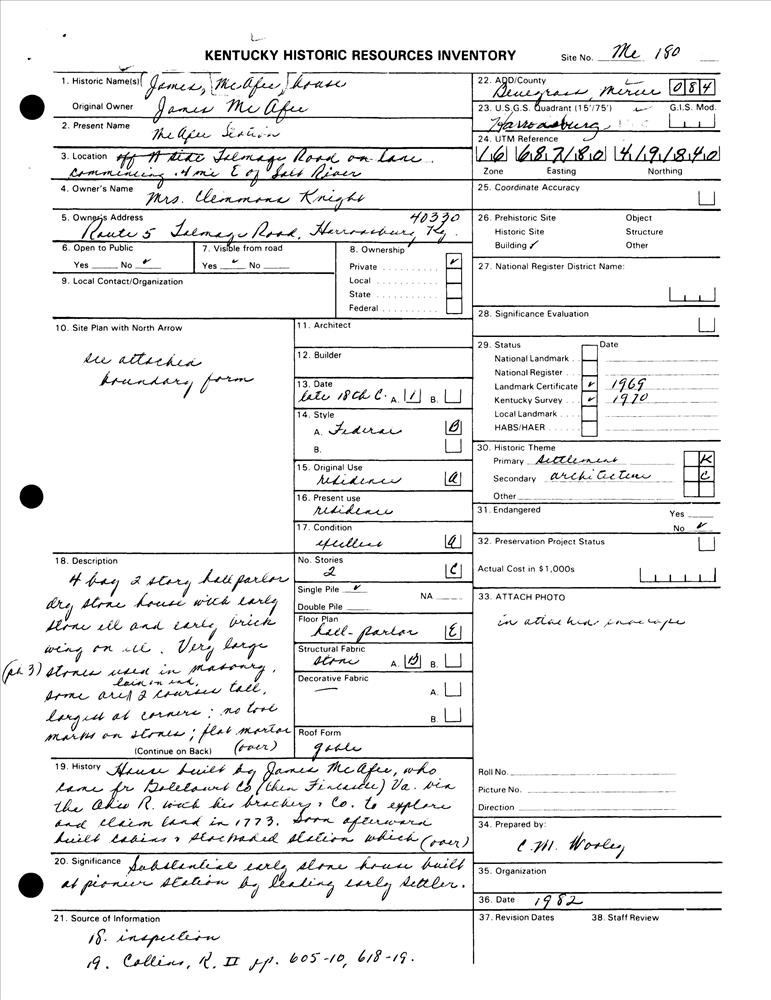 KENTUCKY HISTORIC RESOURCES INVENTORY
Site No. Me 180
1. Historic Name(s) James, McAfee, house
Original Owner James McAfee
2. Present Name McAfee Station
3. Location off N side Talmage Road on lane
commencing .4 mi E of Salt River
4. Owner's Name
Mrs. Clemmons Knight
5. Owner's Address 40330
Route 5 Talmage Road, Harrodsburg Ky.
6. Open to Public
Yes No ✓
7. Visible from road
Yes ✓ No
8. Ownership
Private ✓
Local
State
Federal
9. Local Contact/Organization
10. Site Plan with North Arrow
see attached
boundary form
11. Architect
12. Builder
13. Date
late 18th C. A. 1 B.
14. Style
A. Federal B
B.
15. Original Use
residence a
16. Present use
residence
17. Condition
excellent a
No. Stories
2 C
Single Pile ✓ NA
Double Pile
Floor Plan
hall-parlor E
Structural Fabric
stone A. B B.
Decorative Fabric
— A.
B.
Roof Form
gable
18. Description
4 bay 2 story hall parlor
dry stone house with early
stone ell and early brick
wing on ell. Very large
(ph 3) stones used in masonry,
laid on end,
some are 2 courses tall,
largest at corners; no tool
marks on stones; flat mortar
(Continue on Back) (over)
19. History House built by James McAfee, who
came fr Botetourt Co (then Fincastle) Va. via
the Ohio R. with his brothers & Co. to explore
and claim land in 1773. Soon afterward
built cabins & stockaded station which (over)
20. Significance Substantial early stone house built
at pioneer station by leading early settler.
21. Source of Information
18. inspection
19. Collins, R. II pp. 605-10, 618-19.
22. ADD/County
Bluegrass, Mercer 084
23. U.S.G.S. Quadrant (15'/75') G.I.S. Mod.
Harrodsburg
24. UTM Reference
16 687180 4191840
Zone Easting Northing
25. Coordinate Accuracy
26. Prehistoric Site Object
Historic Site Structure
Building ✓ Other
27. National Register District Name:
28. Significance Evaluation
29. Status Date
National Landmark
National Register
Landmark Certificate ✓ 1969
Kentucky Survey ✓ 1970
Local Landmark
HABS/HAER
30. Historic Theme
Primary Settlement K
Secondary architecture C
Other
31. Endangered Yes
No ✓
32. Preservation Project Status
Actual Cost in $1,000s
33. ATTACH PHOTO
in attached envelope
Roll No.
Picture No.
Direction
34. Prepared by:
C.M. Wooley
35. Organization
36. Date 1982
37. Revision Dates 38. Staff Review